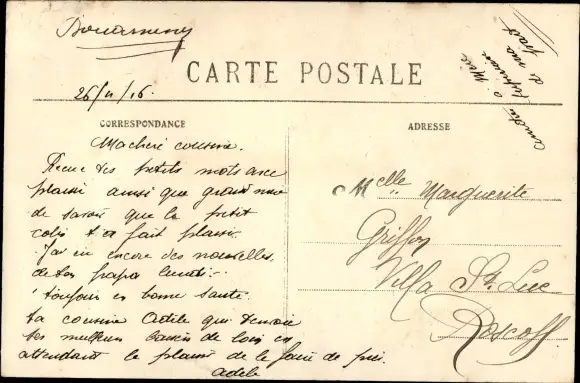 Douarnenez
CARTE POSTALE
26/11/16.
CORRESPONDANCE
Ma cheri cousine.
Recue tes petits mots avec
plaisir aussi que grand mère
de savoir que le petit
colis t'a fait plaisir.
J'ai eu encore des nouvelles
de ton papa lundi.
toujours en bonne santé.
ta cousine Adèle qui t'envoie
ses meilleurs baisers de loin en
attendant le plaisir de le faire de près.
Adèle
ADRESSE
Melle Marguerite
Griffon
Villa St. Luc
Roscoff
de ma part